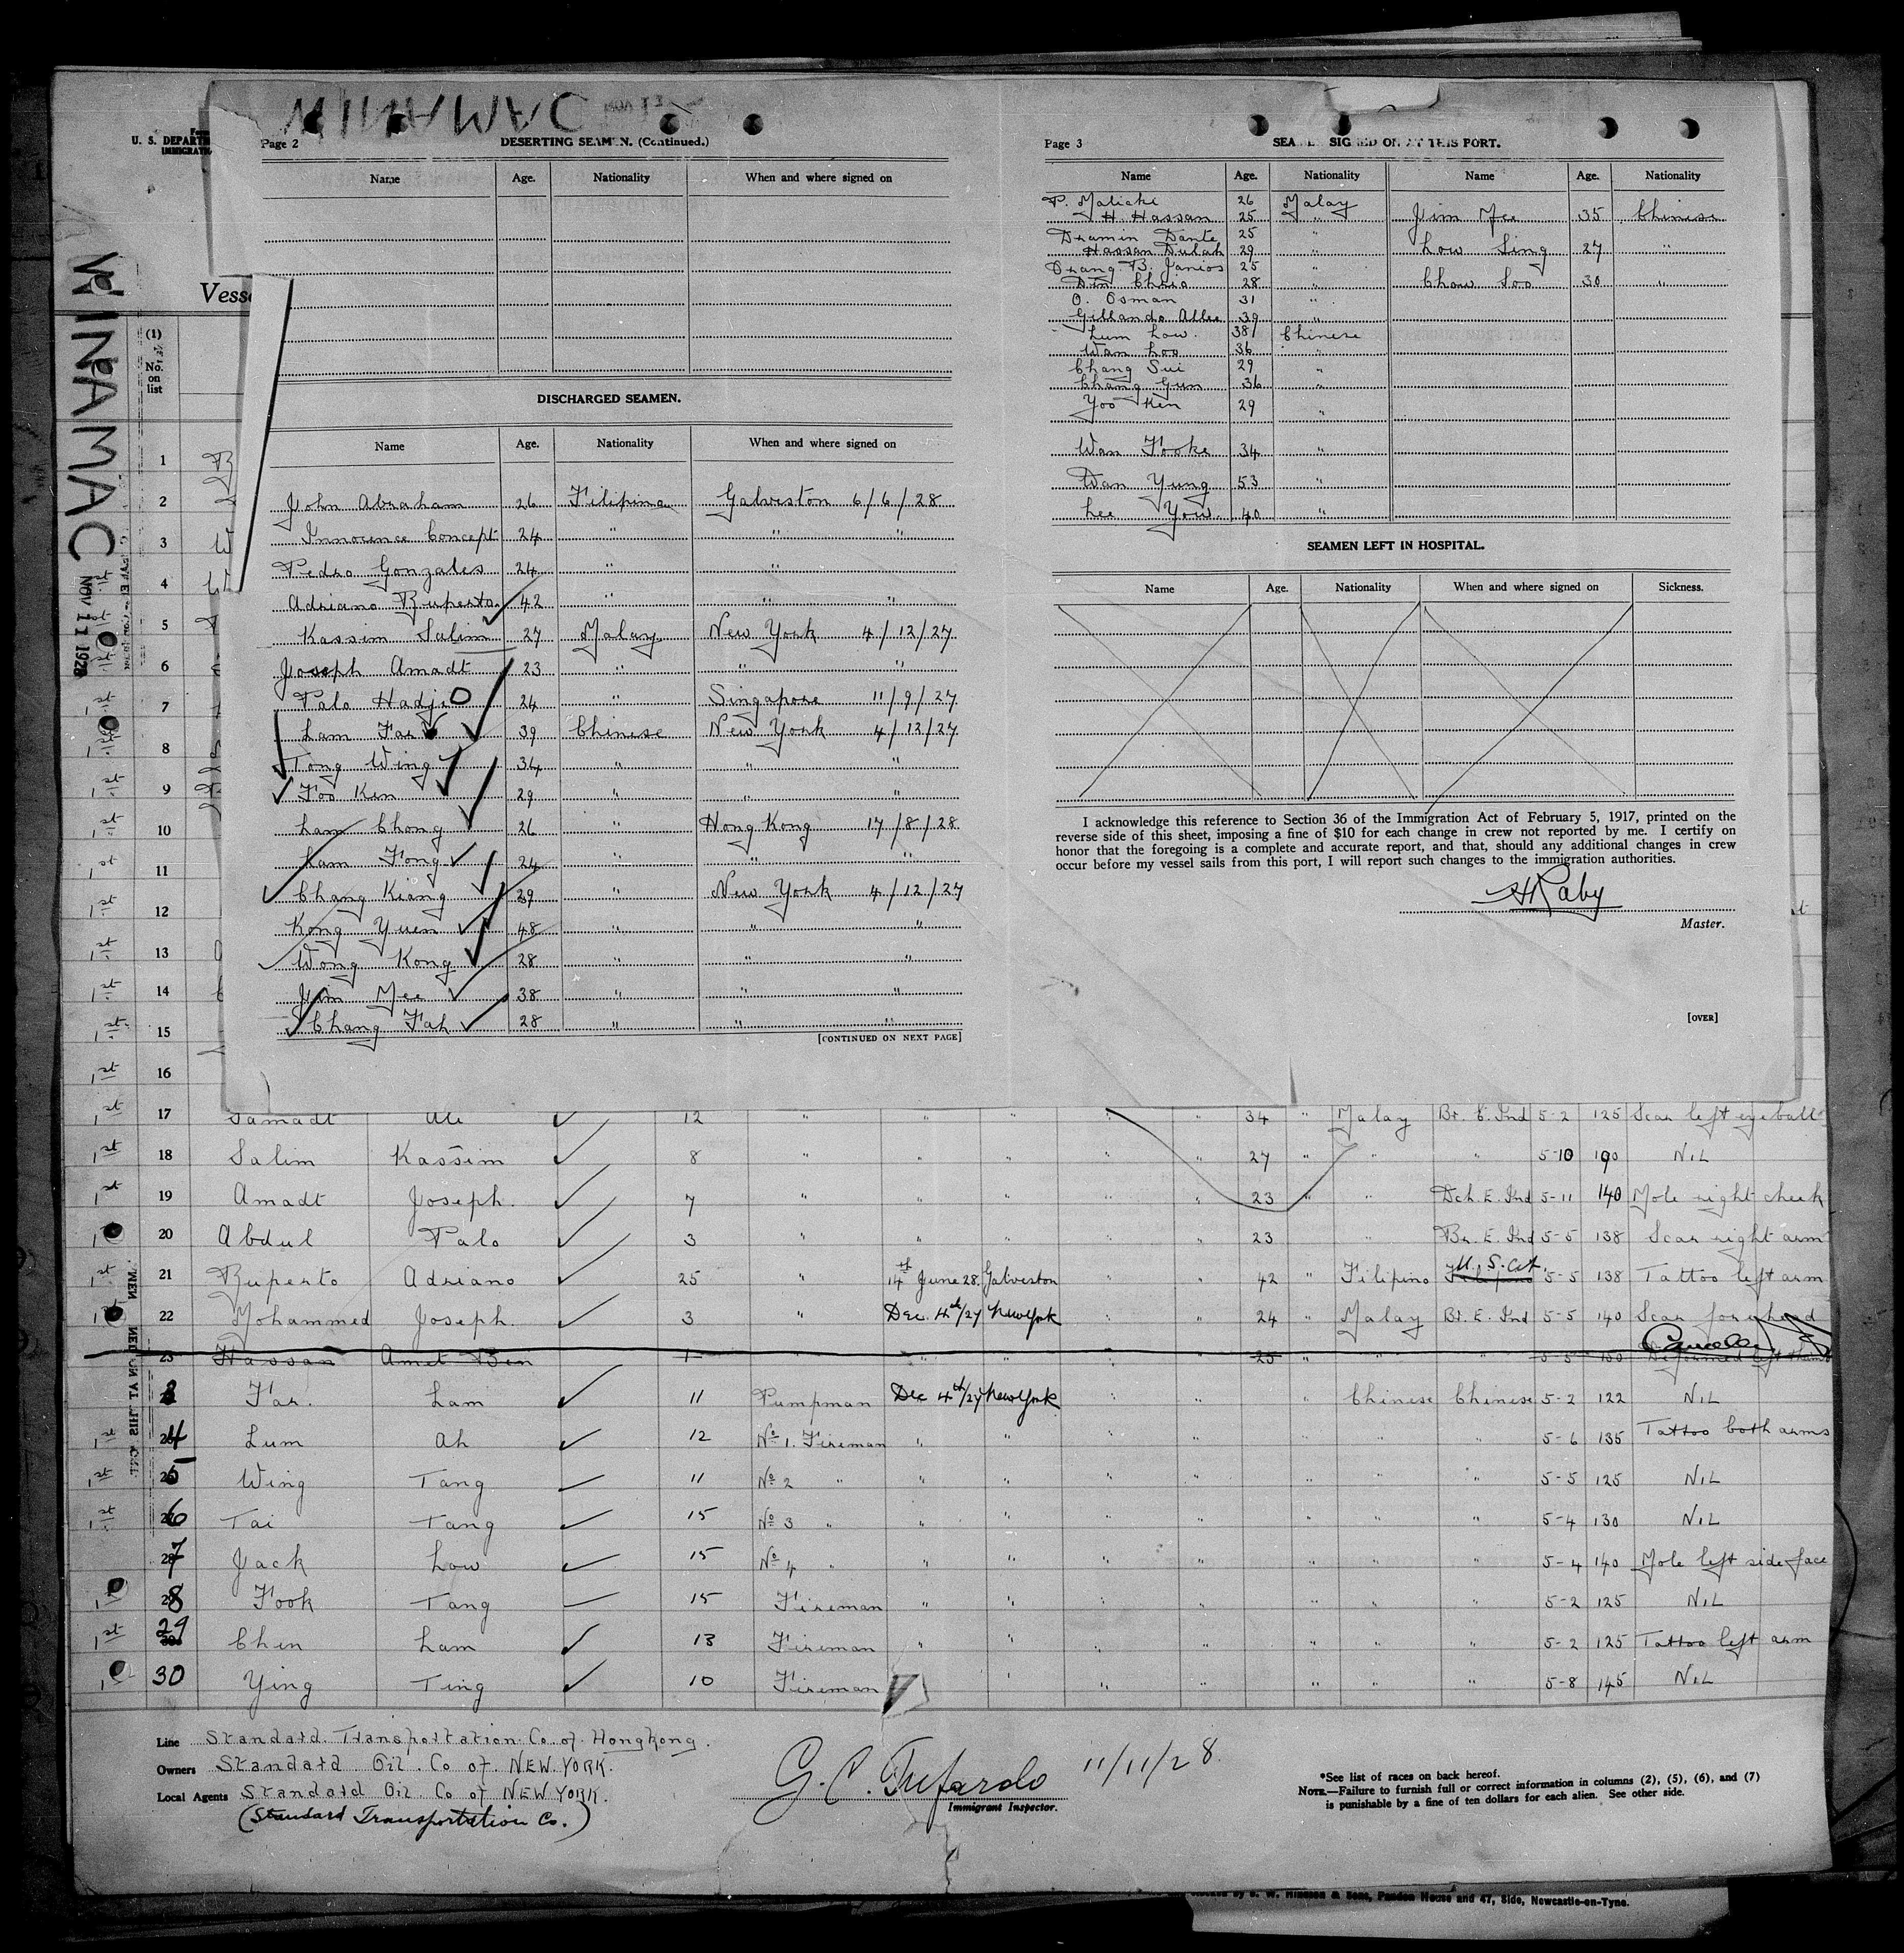 WINAMAC
Page 2
DESERTING SEAMEN. (Continued.)
Name Age. Nationality When and where signed on
DISCHARGED SEAMEN.
Name Age. Nationality When and where signed on
John Abraham 26 Filipino Galveston 6/6/28
Innocence Concept 24 " " "
Pedro Gonzales 24 " "
Adriano Ruperto 42 " " "
Kassim Salim 27 Malay New York 4/12/27
Joseph Amadt 23 " " "
Palo Hadji 24 " Singapore 11/9/27
Lam Far 39 Chinese New York 4/12/27
Tong Wing 34 " " "
Foo Ken 29 " " "
Lam Chong 26 " Hong Kong 17/8/28
Lam Fong 24 " " "
Chang Kiang 29 " New York 4/12/27
Kong Yuen 48 " " "
Wong Kong 28 " " "
Jim Mee 38 " " "
Chang Fah 28 " " "
[CONTINUED ON NEXT PAGE]
Page 3
SEAMEN SIGNED ON AT THIS PORT.
Name Age. Nationality Name Age. Nationality
P. Malicki 26 Malay
H. Hassan 25 " Jim Mee 35 Chinese
Dramin Dante 25 "
Hassan Dulah 29 " Low Sing 27 "
Drang B. Janios 25 "
Din Chria 28 " Chow Soo 30 "
O. Osman 31 "
Gillando Allee 39 "
Lum Low 38 Chinese
Wan Loo 36 "
Chang Sui 29 "
Chang Gun 36 "
Yoo Ken 29 "
Wan Fooke 34 "
Wan Yung 53 "
Lee Yow 40 "
SEAMEN LEFT IN HOSPITAL.
Name Age. Nationality When and where signed on Sickness.
I acknowledge this reference to Section 36 of the Immigration Act of February 5, 1917, printed on the
reverse side of this sheet, imposing a fine of $10 for each change in crew not reported by me. I certify on
honor that the foregoing is a complete and accurate report, and that, should any additional changes in crew
occur before my vessel sails from this port, I will report such changes to the immigration authorities.
H Raby
Master.
[OVER]
U. S. DEPARTM
IMMIGRATI
Vesse
WINAMAC
NOV 11 1928
(1)
No.
on
list
1
2
3
4
5
6
7
8
9
10
1st 11
1st 12
1st 13
1st 14
1st 15
1st 16
1st 17 Samadt Ali 12 " " " " " 34 " Malay Br. E. Ind 5-2 125 Scar left eyeball
1st 18 Salim Kassim 8 " " " " " 27 " " " 5-10 190 NIL
1st 19 Amadt Joseph. 7 " " " " " 23 " " Dch. E. Ind 5-11 140 Mole right cheek
20 Abdul Palo 3 " " " " " 23 " Br. E. Ind 5-5 138 Scar right arm
1st 21 Ruperto Adriano 25 " 14th June 28 Galveston " " 42 " Filipino U.S. Cit. 5-5 138 Tattoo left arm
22 Mohammed Joseph. 3 " Dec. 4th/27 New York " " 24 " Malay Br. E. Ind 5-5 140 Scar forehead
23 Hassan Amet Ben 1 " " " 25 " " " 5-5 130 Deformed left thumb
Cancelled
Far. Lam 11 Pumpman Dec 4th/27 New York " " " Chinese Chinese 5-2 122 NIL
1st 4 Lum Ah 12 No 1. Fireman " " " " " " " 5-6 135 Tattoo both arms
1st 5 Wing Tang 11 No 2 " " " " " " " " 5-5 125 NIL
1st 6 Tai Tang 15 No 3 " " " " " " " " 5-4 130 NIL
7 Jack Low 15 No 4 " " " " " " " " 5-4 140 Mole left side face
8 Fook Tang 15 Fireman " " " " " " " 5-2 125 NIL
1st 29 Chen Lam 13 Fireman " " " " " " " 5-2 125 Tattoo left arm
30 Ying Ting 10 Fireman " " " " " " 5-8 145 NIL
Line Standard Transportation Co. of Hongkong.
Owners Standard Oil. Co of NEW YORK.
Local Agents Standard Oil. Co of NEW YORK.
(Standard Transportation Co.)
G. C. Tufardo 11/11/28.
Immigrant Inspector.
*See list of races on back hereof.
NOTE.—Failure to furnish full or correct information in columns (2), (5), (6), and (7)
is punishable by a fine of ten dollars for each alien. See other side.
& Sons, Pandon House and 47, Side, Newcastle-on-Tyne.